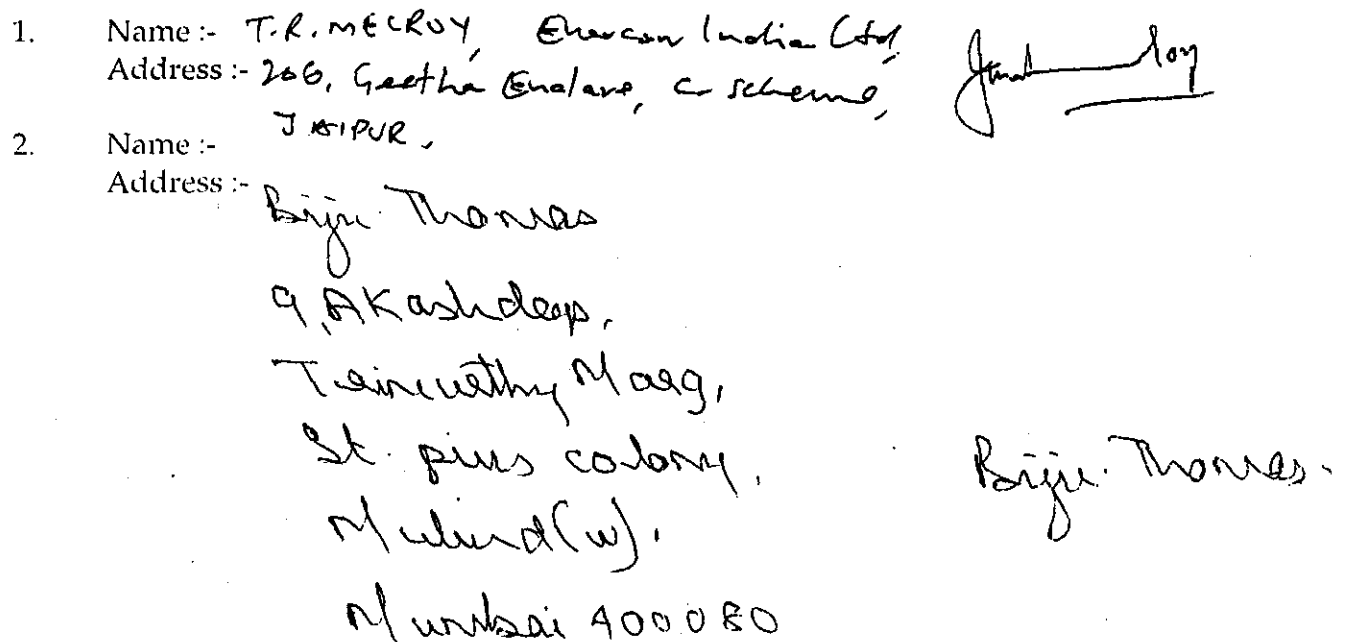 1. Name :- T.R. MECROY, Enercon India Ltd,
Address :- 206, Geetha Enclave, C-scheme,
JAIPUR.
2. Name :-
Address :-
Biju Thomas
9, AKashdeep,
Trimurthy Marg,
St. pius colony,
Biju Thomas.
Mulund (w).
Mumbai 400080